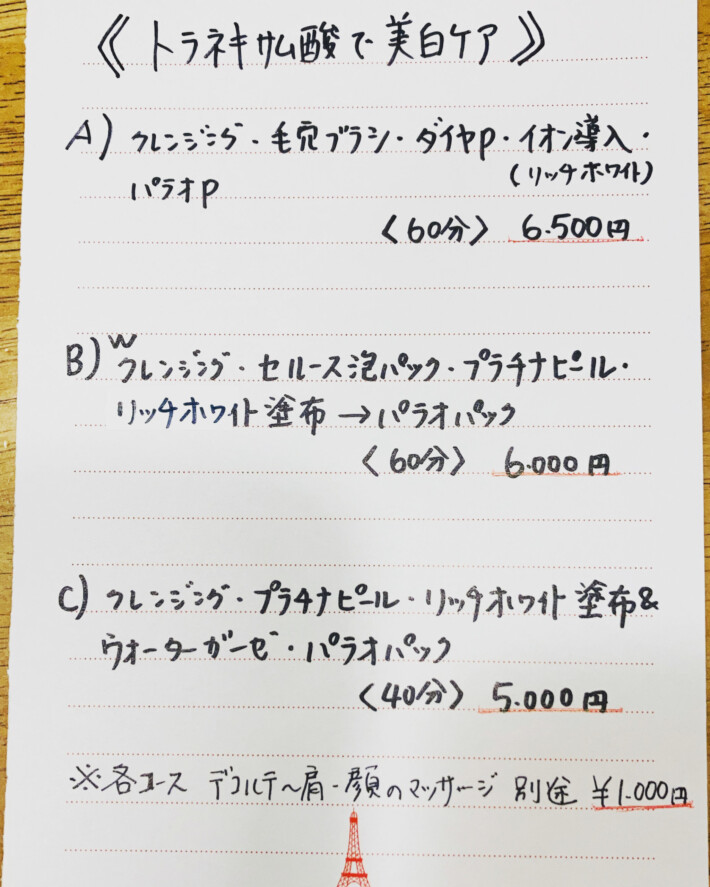 《トラネキサム酸で美白ケア》
A) クレンジング・毛穴ブラシ・ダイヤP・イオン導入・
(リッチホワイト)
パラオP
〈60分〉 6.500円
B) Wクレンジング・セルース泡パック・プラチナピール・
リッチホワイト塗布→パラオパック
〈60分〉 6.000円
C) クレンジング・プラチナピール・リッチホワイト塗布&
ウォーターガーゼ・パラオパック
〈40分〉 5.000円
※各コース デコルテ〜肩-顔のマッサージ 別途 ¥1.000円